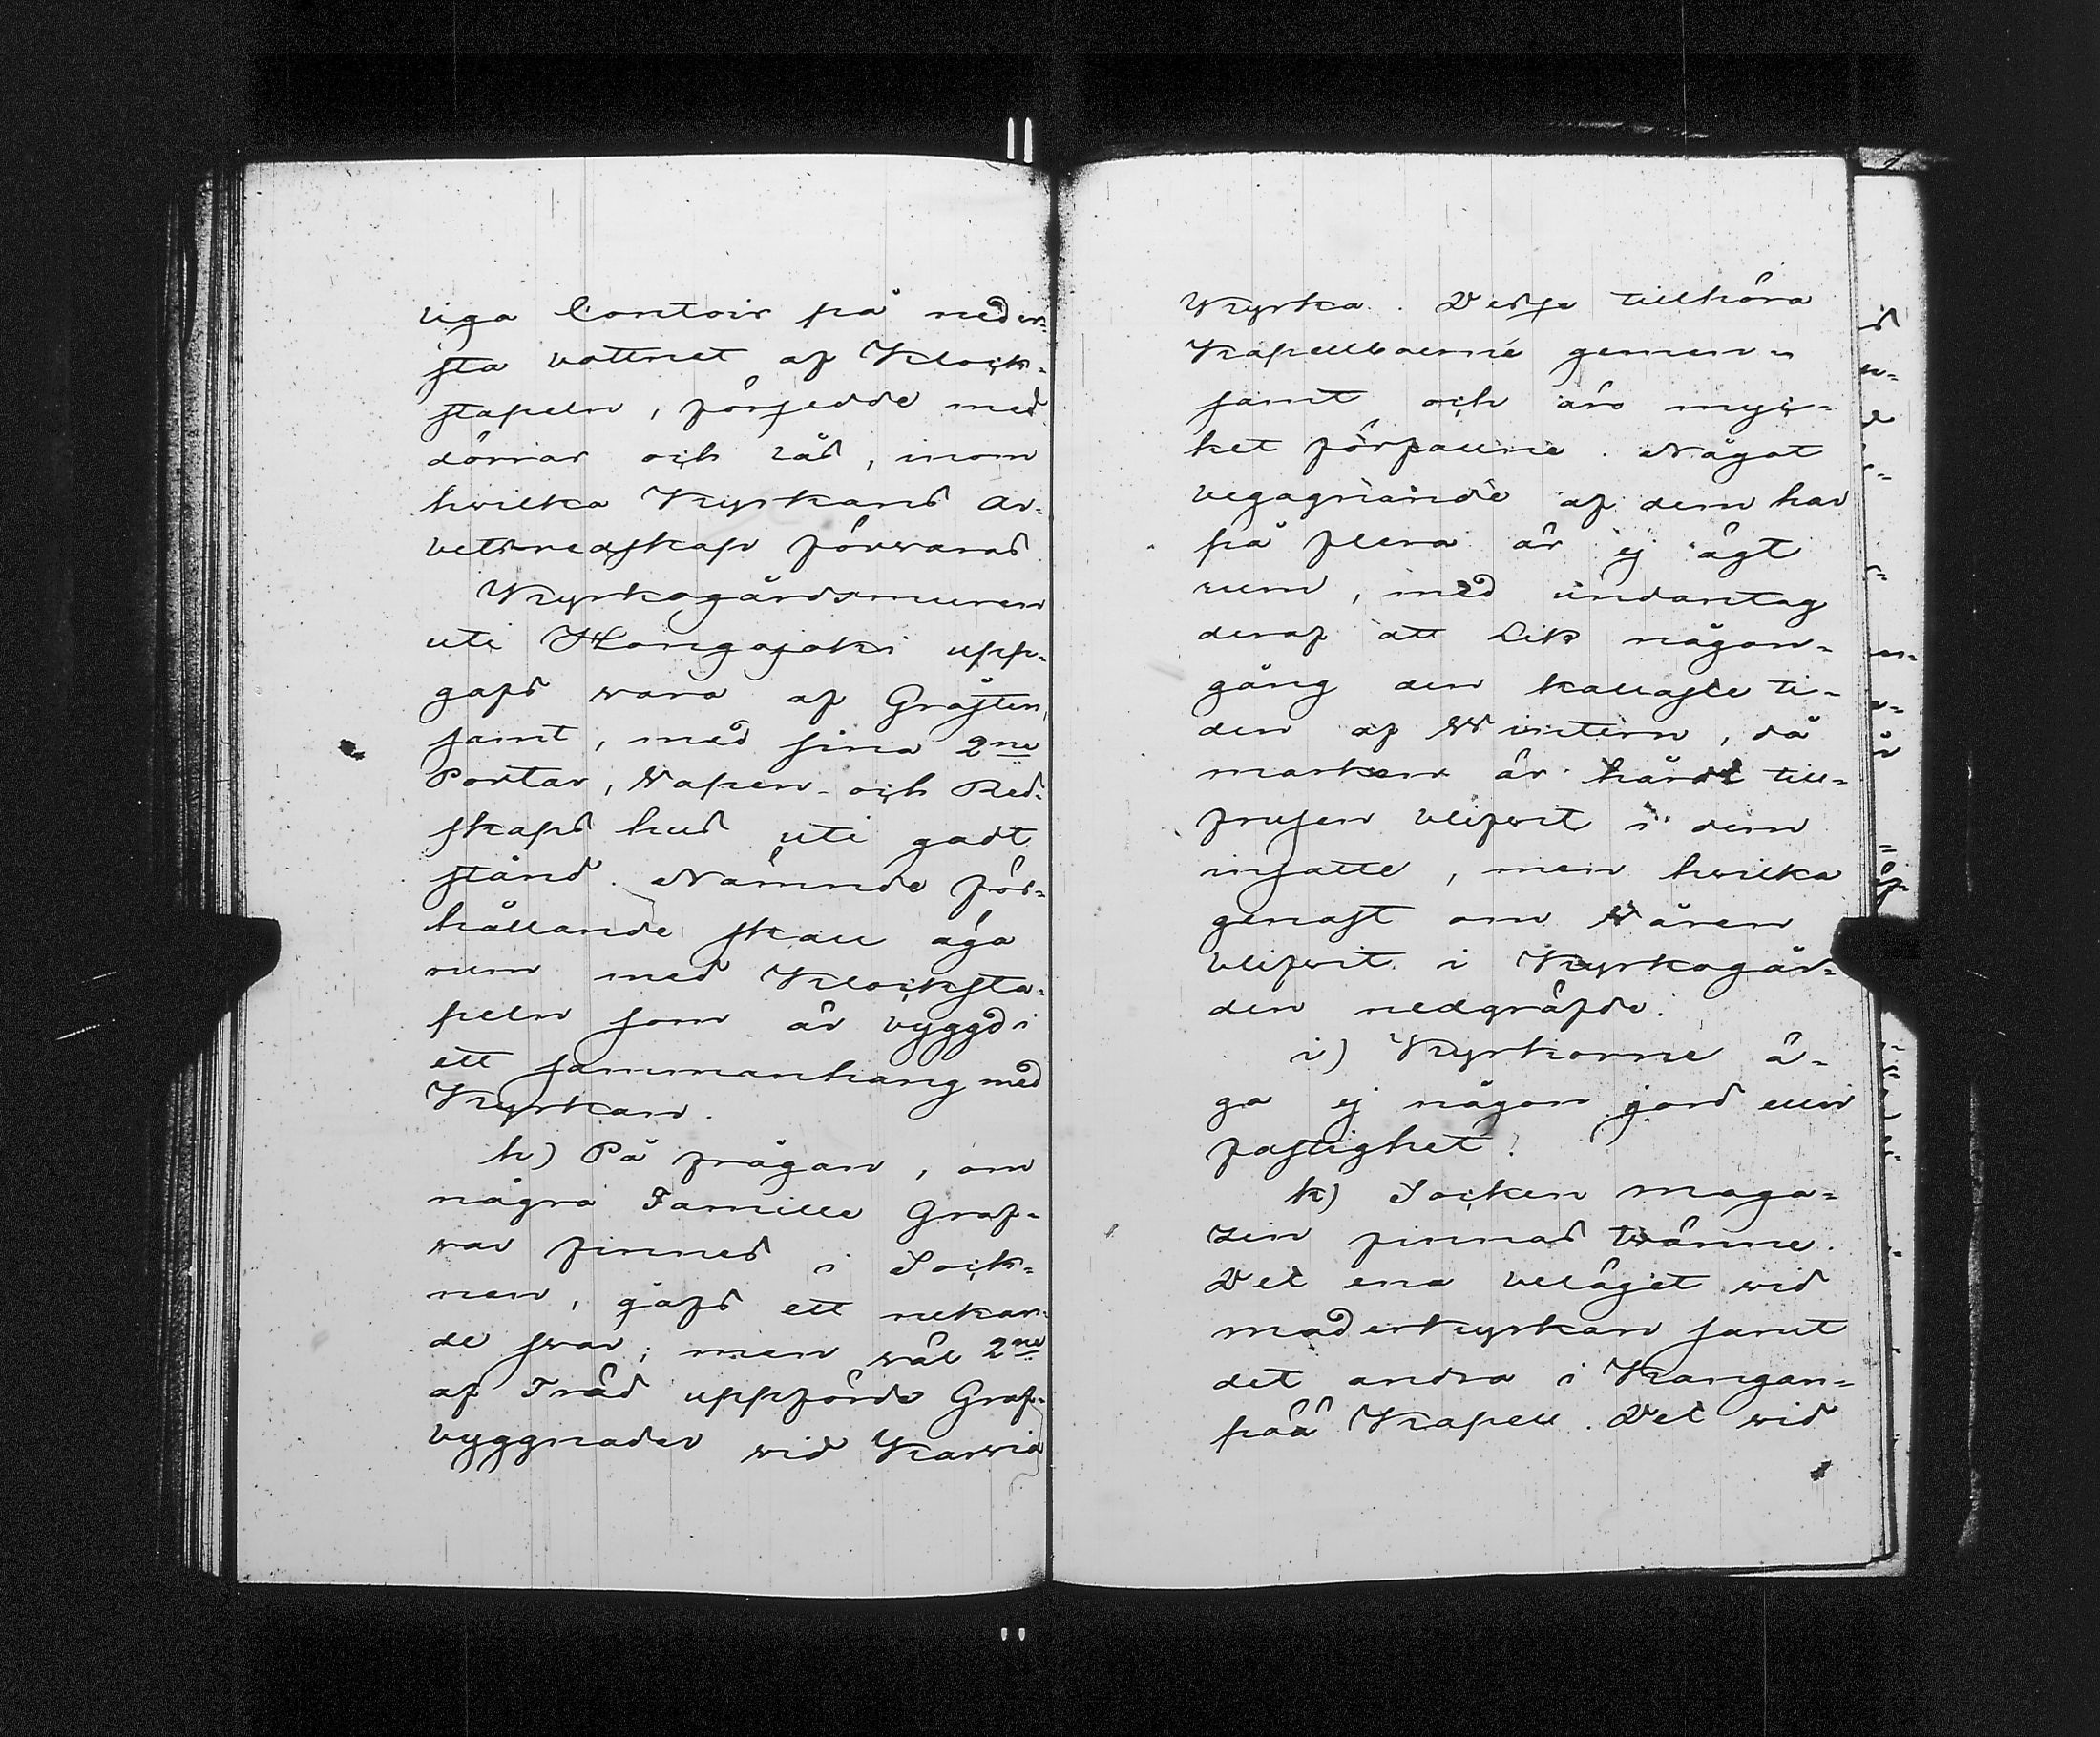 liga Contoir på neder-
sta bottnet af Klock-
stapeln, försedde med
dörrar och lås, inom
hwilka Kyrkans Ar-
betsredskap förwaras.
Kyrkogårdsmuren
uti Hongojoki upp-
gafs wara af Gråsten,
samt, med sina 2ne
Portar, Wapen- och Red-
skaps hus uti godt
stånd. Nämnde för-
hållande skall äga
rum med Klocksta-
peln som är byggd i
ett sammanhang med
Kyrkan.
h) På frågan, om
några Famille Graf-
war finnes i Sock-
nen, gafs ett nekan-
de swar; men wäl 2ne
af Träd uppförde Graf-
byggnader wid Karvia
Kyrka. Desse tillhöra
Kapellboerne gemen-
samt och äro myc-
ket förfallne. Något
begagnande af dem har
på flera år ej ägt
rum, med undantag
deraf att Lik någon-
gång den kallaste ti-
den af Wintern, då
marken är hårdt till-
frusen blifwit i dem
insatte, men hwilka
genast om Wåren
blifwit i Kyrkogår-
den nedgräfde.
i) Kyrkorne ä-
ga ej någon jord eller
fastighet.
k) Socken maga-
zin finnas twänne.
Det ena beläget wid
moderkyrkan samt
det andra i Kangan-
pää Kapell. Det wid